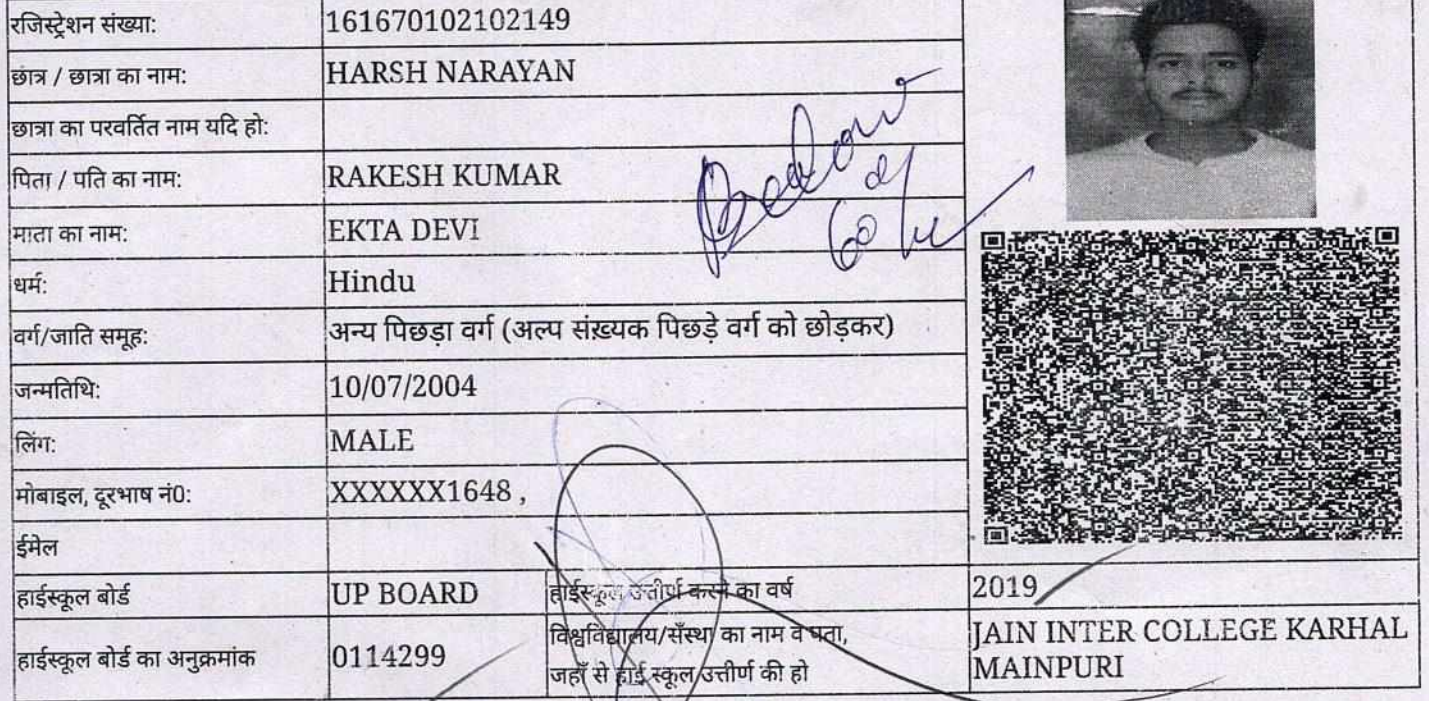 रजिस्ट्रेशन संख्या: 161670102102149
छात्र / छात्रा का नाम: HARSH NARAYAN
छात्रा का परवर्तित नाम यदि हो:
पिता / पति का नाम: RAKESH KUMAR
माता का नाम: EKTA DEVI
धर्म: Hindu
वर्ग/जाति समूह: अन्य पिछड़ा वर्ग (अल्प संख़्यक पिछड़े वर्ग को छोड़कर)
जन्मतिथि: 10/07/2004
लिंग: MALE
मोबाइल, दूरभाष नं0: XXXXXX1648 ,
ईमेल
हाईस्कूल बोर्ड UP BOARD हाईस्कूल उत्तीर्ण करने का वर्ष 2019
हाईस्कूल बोर्ड का अनुक्रमांक 0114299 विश्वविद्यालय/सँस्था का नाम व पता, जहाँ से हाई स्कूल उत्तीर्ण की हो JAIN INTER COLLEGE KARHAL
MAINPURI